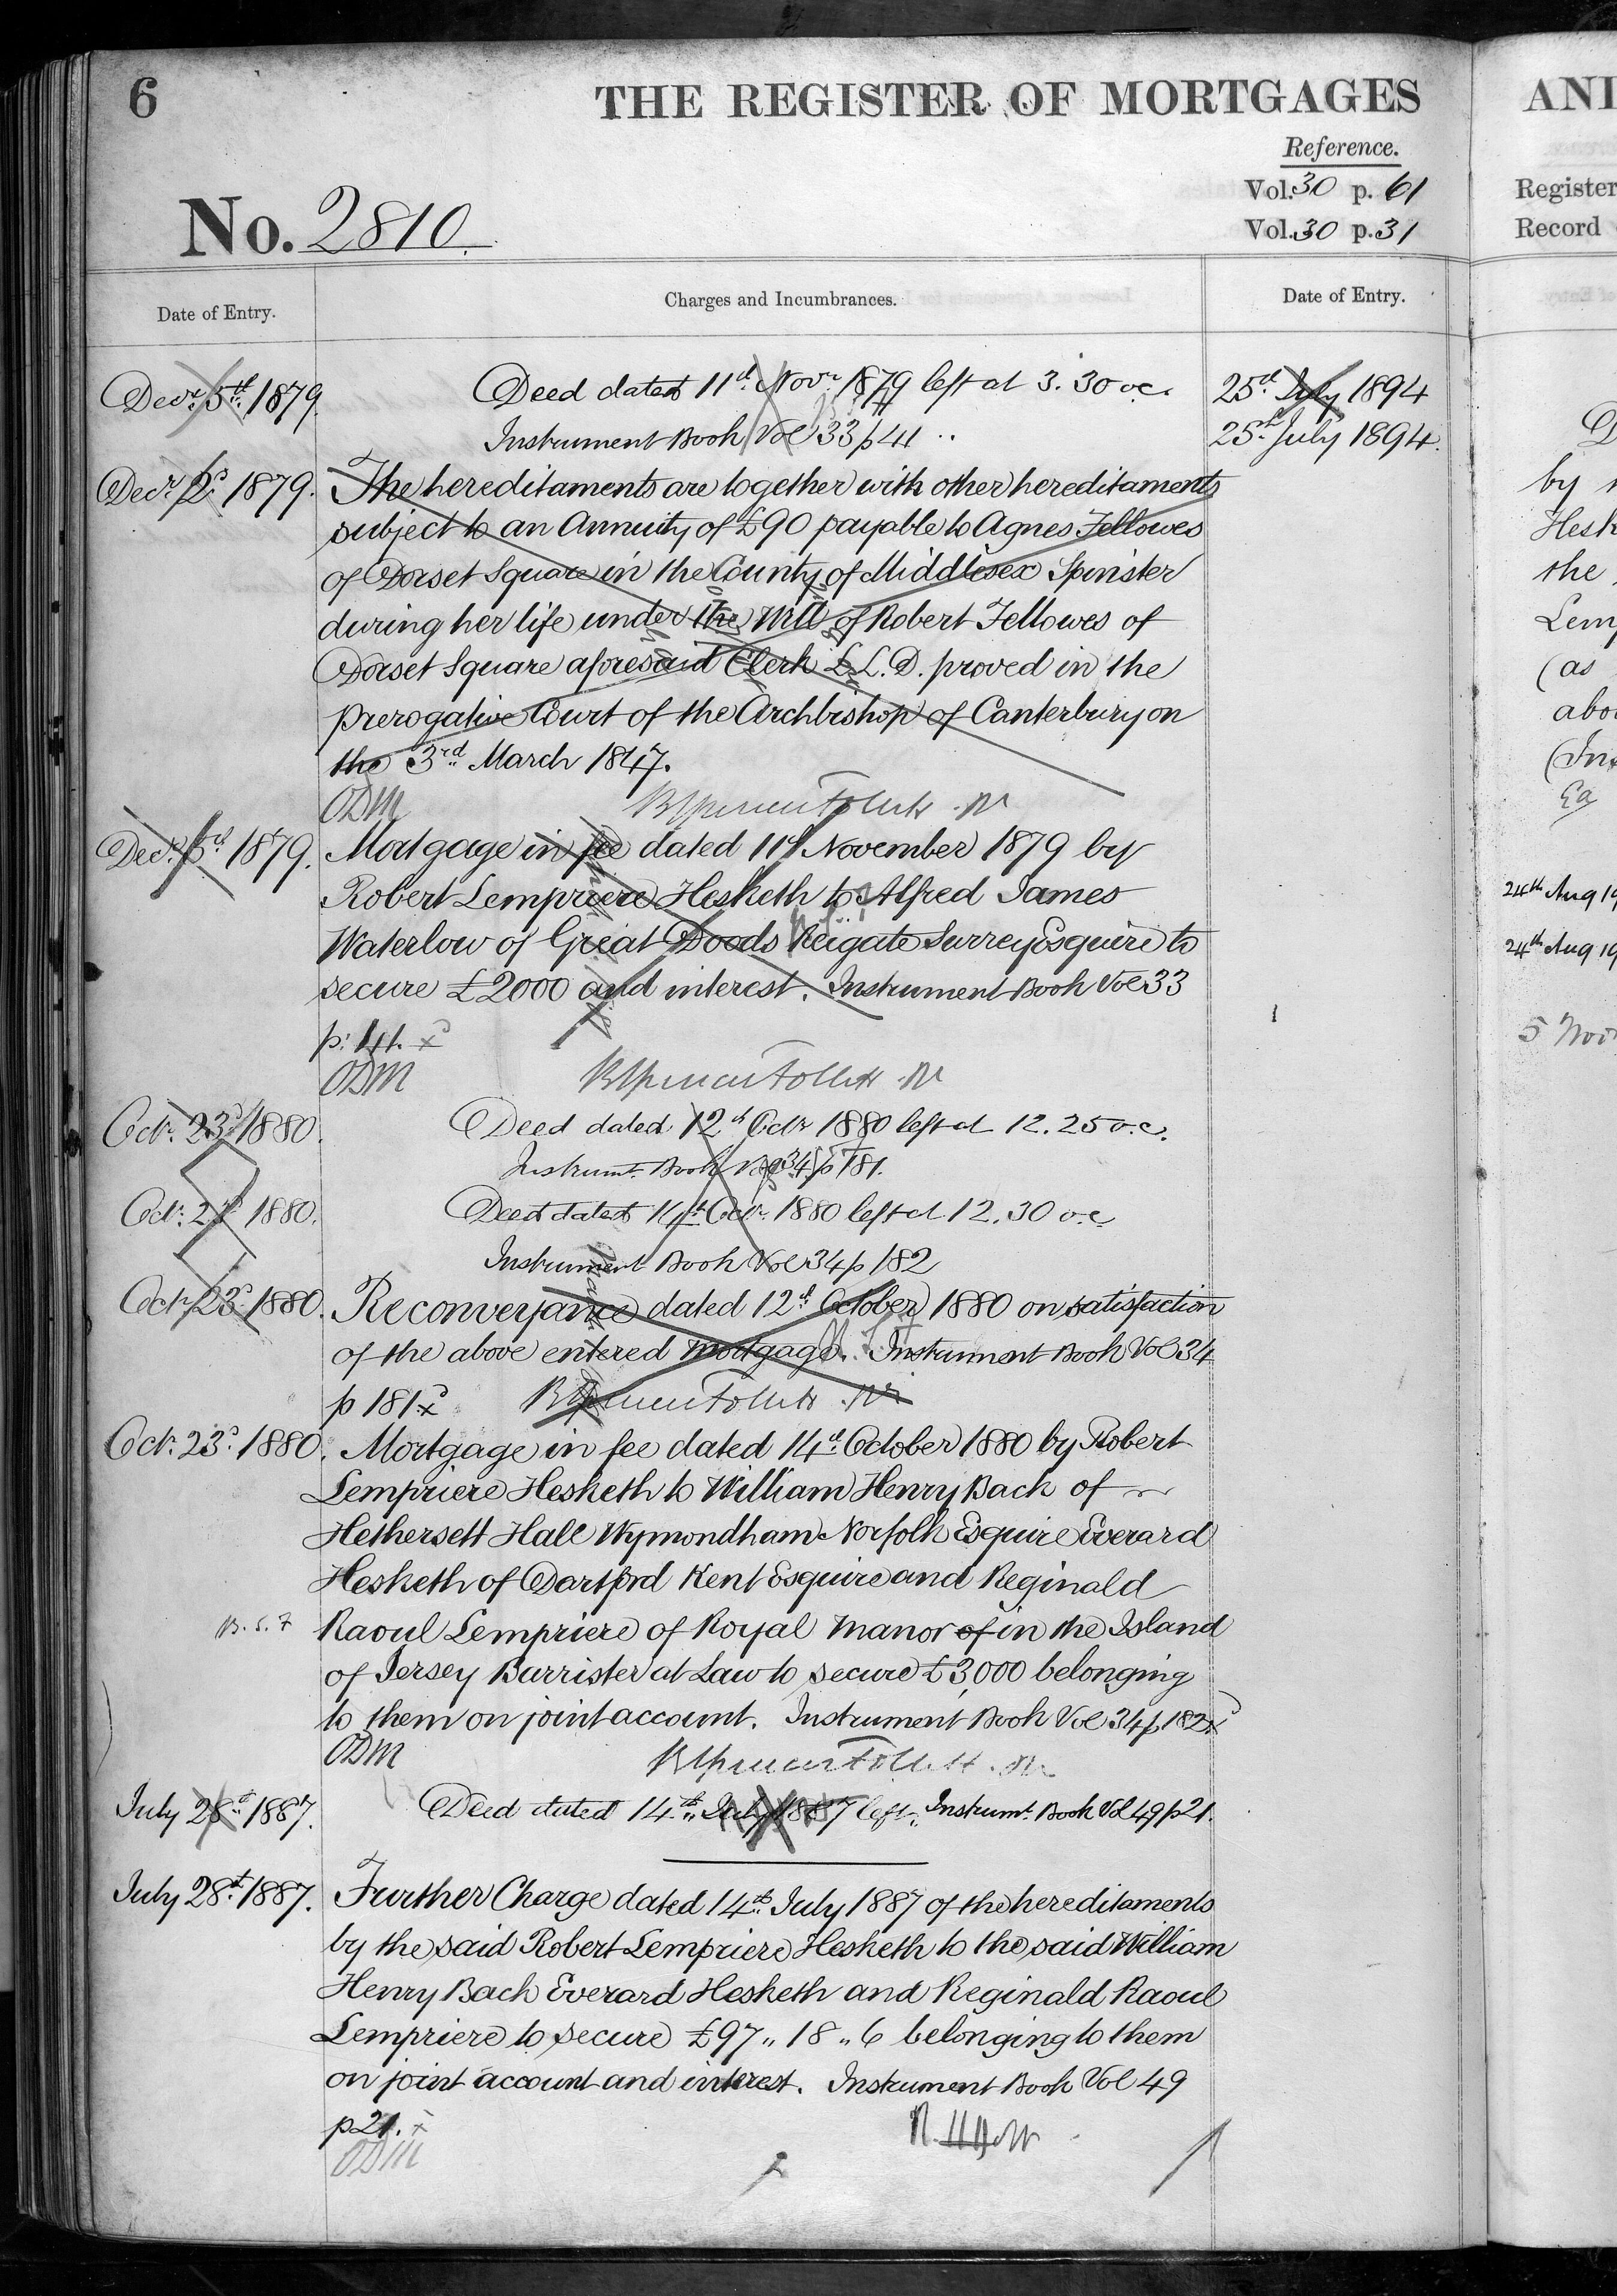 6
THE REGISTER OF MORTGAGES
Reference.
Vol. 30 p. 61
Vol. 30 p. 31
No. 2810.
Date of Entry.
Charges and Incumbrances.
Date of Entry.
Decr. 5th. 1879.
Deed dated 11th. Novr. 1879 left at 3.30 o.c.
25th July 1894
Instrument Book Vol 33 p 41
25th. July 1894.
Decr. 1879.
The hereditaments are together with other hereditaments
subject to an Annuity of £90 payable to Agnes Fellowes
of Dorset Square in the County of Middlesex Spinster
during her life under the Will of Robert Fellowes of
Dorset Square aforesaid Clerk L.L.D. proved in the
Prerogative Court of the Archbishop of Canterbury on
the 3rd. March 1847.
ODM
Decr. 1879.
Mortgage in fee dated 11th November 1879 by
Robert Lempriere Hesketh to Alfred James
Waterlow of Great Doods Reigate Surrey Esquire to
secure £2000 and interest. Instrument Book Vol 33
p: 41. x
ODM
Octr. 23d. 1880.
Deed dated 12th Octr 1880 left at 12.25 o.c.
Instrumt. Book Vol 34 p 181.
Octr. 23d 1880.
Deed dated 14th Octr. 1880 left at 12.30 o.c
Instrument Book Vol 34 p 182
Octr. 23d. 1880.
Reconveyance dated 12th October 1880 on satisfaction
of the above entered mortgage. Instrument Book Vol 34
p 181 x
Oct. 23d. 1880.
Mortgage in fee dated 14th October 1880 by Robert
Lempriere Hesketh to William Henry Back of
Hethersett Hall Wymondham Norfolk Esquire Everard
Hesketh of Dartford Kent Esquire and Reginald
B.S.F
Raoul Lempriere of Royal Manor of in the Island
of Jersey Barrister at Law to secure £3,000 belonging
to them on joint account. Instrument Book Vol 34 p 182 x
ODM
July 28th. 1887.
Deed dated 14th. July 1887 left. Instrumt. Book Vol 49 p 21.
July 28th. 1887.
Further Charge dated 14th. July 1887 of the hereditaments
by the said Robert Lempriere Hesketh to the said William
Henry Back Everard Hesketh and Reginald Raoul
Lempriere to secure £97 " 18 " 6 belonging to them
on joint account and interest. Instrument Book Vol 49
p 21. x
ODM
ANI
Register
Record
D
by
Hesk
the
Lemp
(as
abo
(Ins
24th Aug 19
24th Aug 19
5 Nov